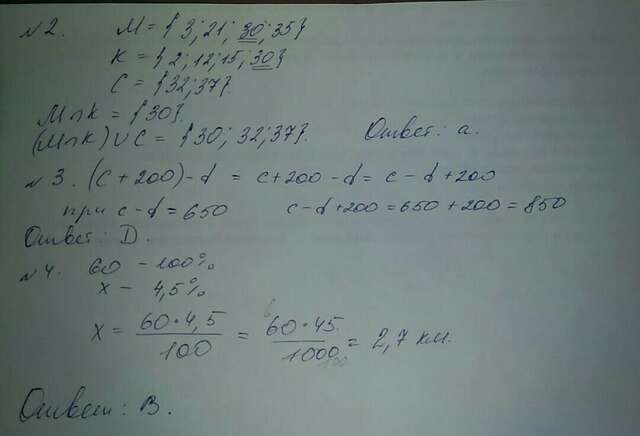 №2. M = {3; 21; 30; 35}
K = {2; 12; 15; 30}
C = {32; 37}.
M∩K = {30}.
(M∩K)∪C = {30; 32; 37}. Ответ: а.
№3. (c+200)-d = c+200-d = c-d+200
при c-d=650 c-d+200=650+200=850
Ответ: D.
№4. 60 - 100%
x - 4,5%
x = 60·4,5/100 = 60·45/1000 = 2,7 км.
Ответ: B.